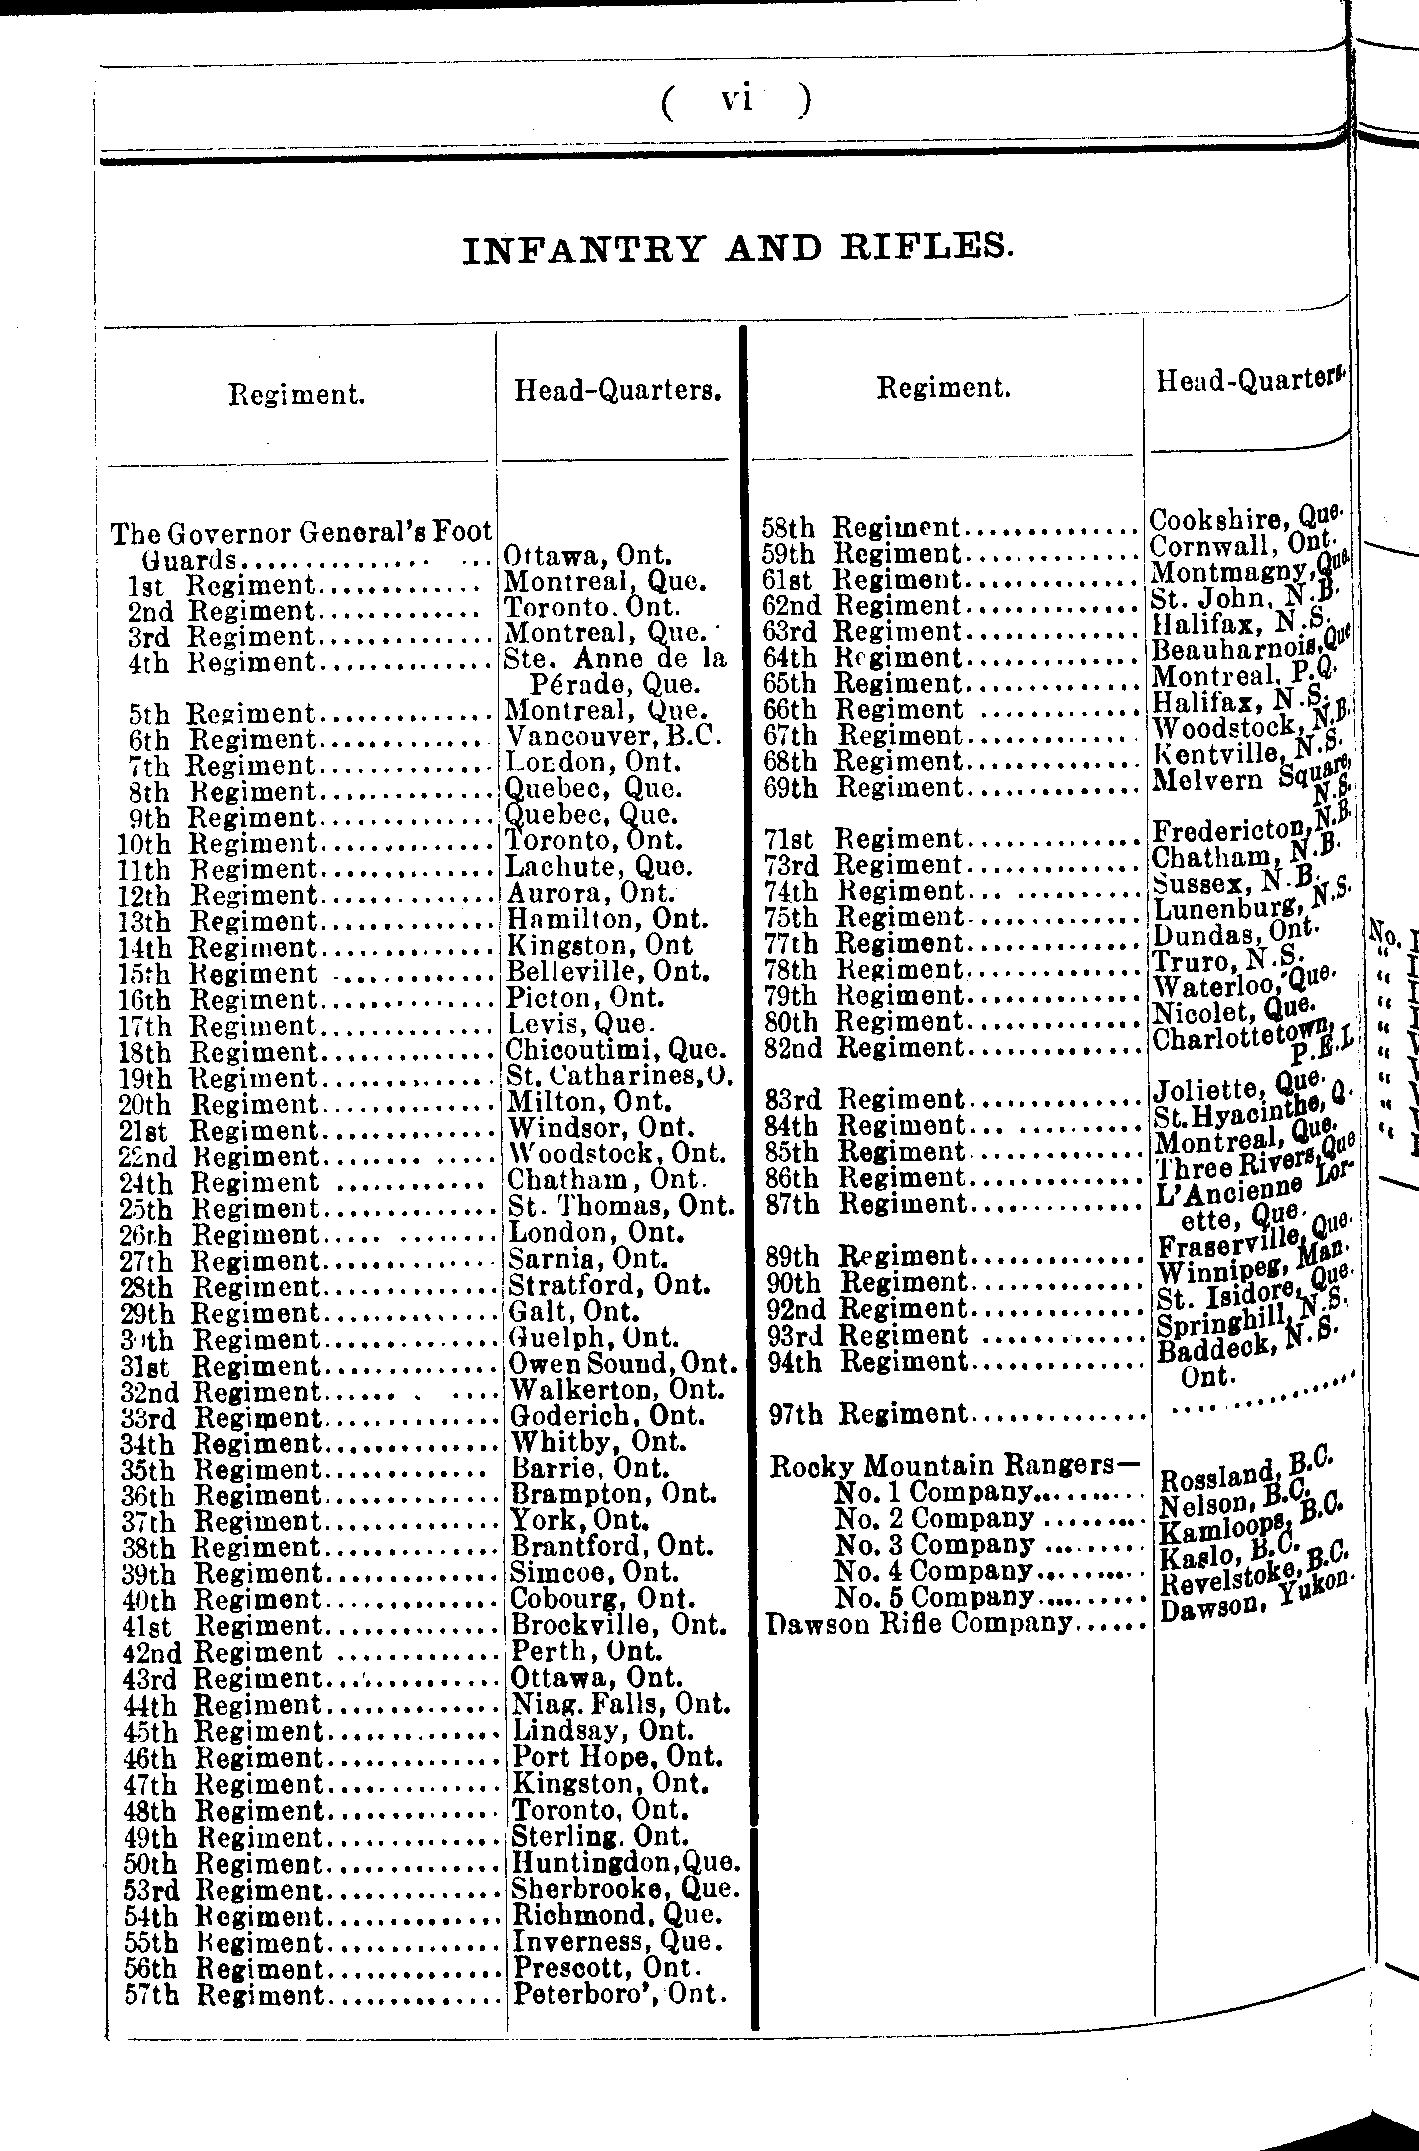 ( vi )
INFANTRY AND RIFLES.
Regiment. Head-Quarters.
The Governor General's Foot
Guards.................. Ottawa, Ont.
1st Regiment............. Montreal, Que.
2nd Regiment............. Toronto. Ont.
3rd Regiment.............. Montreal, Que.
4th Regiment.............. Ste. Anne de la
Pérade, Que.
5th Regiment.............. Montreal, Que.
6th Regiment.............. Vancouver, B.C.
7th Regiment.............. London, Ont.
8th Regiment.............. Quebec, Que.
9th Regiment.............. Quebec, Que.
10th Regiment.............. Toronto, Ont.
11th Regiment.............. Lachute, Que.
12th Regiment.............. Aurora, Ont.
13th Regiment.............. Hamilton, Ont.
14th Regiment.............. Kingston, Ont
15th Regiment ............. Belleville, Ont.
16th Regiment.............. Picton, Ont.
17th Regiment.............. Levis, Que.
18th Regiment.............. Chicoutimi, Que.
19th Regiment.............. St. Catharines, O.
20th Regiment.............. Milton, Ont.
21st Regiment.............. Windsor, Ont.
22nd Regiment........ ..... Woodstock, Ont.
24th Regiment ............ Chatham, Ont.
25th Regiment.............. St. Thomas, Ont.
26th Regiment..... ........ London, Ont.
27th Regiment.............. Sarnia, Ont.
28th Regiment.............. Stratford, Ont.
29th Regiment.............. Galt, Ont.
30th Regiment.............. Guelph, Ont.
31st Regiment.............. Owen Sound, Ont.
32nd Regiment...... . .... Walkerton, Ont.
33rd Regiment.............. Goderich, Ont.
34th Regiment.............. Whitby, Ont.
35th Regiment............. Barrie, Ont.
36th Regiment.............. Brampton, Ont.
37th Regiment.............. York, Ont.
38th Regiment.............. Brantford, Ont.
39th Regiment.............. Simcoe, Ont.
40th Regiment.............. Cobourg, Ont.
41st Regiment.............. Brockville, Ont.
42nd Regiment ............. Perth, Ont.
43rd Regiment.............. Ottawa, Ont.
44th Regiment.............. Niag. Falls, Ont.
45th Regiment.............. Lindsay, Ont.
46th Regiment.............. Port Hope, Ont.
47th Regiment.............. Kingston, Ont.
48th Regiment.............. Toronto, Ont.
49th Regiment.............. Sterling. Ont.
50th Regiment.............. Huntingdon, Que.
53rd Regiment.............. Sherbrooke, Que.
54th Regiment.............. Richmond, Que.
55th Regiment.............. Inverness, Que.
56th Regiment.............. Prescott, Ont.
57th Regiment.............. Peterboro', Ont.
Regiment. Head-Quarters.
58th Regiment.............. Cookshire, Que.
59th Regiment.............. Cornwall, Ont.
61st Regiment.............. Montmagny, Que.
62nd Regiment.............. St. John, N.B.
63rd Regiment.............. Halifax, N.S.
64th Regiment.............. Beauharnois, Que
65th Regiment.............. Montreal, P.Q.
66th Regiment ............. Halifax, N.S.
67th Regiment.............. Woodstock, N.B.
68th Regiment.............. Kentville, N.S.
69th Regiment.............. Melvern Square,
N.S.
71st Regiment.............. Fredericton, N.B.
73rd Regiment.............. Chatham, N.B.
74th Regiment... .......... Sussex, N.B.
75th Regiment.............. Lunenburg, N.S.
77th Regiment.............. Dundas, Ont.
78th Regiment.............. Truro, N.S.
79th Regiment.............. Waterloo, Que.
80th Regiment.............. Nicolet, Que.
82nd Regiment.............. Charlottetown,
P.E.I.
83rd Regiment.............. Joliette, Que.
84th Regiment... .......... St. Hyacinthe, Q.
85th Regiment.............. Montreal, Que.
86th Regiment.............. Three Rivers, Que
87th Regiment.............. L'Ancienne Lor-
ette, Que.
89th Regiment.............. Fraserville, Que.
90th Regiment.............. Winnipeg, Man.
92nd Regiment.............. St. Isidore, Que.
93rd Regiment ............. Springhill, N.S.
94th Regiment.............. Baddeck, N.S.
Ont.
97th Regiment.............. ...............
Rocky Mountain Rangers—
No. 1 Company......... Rossland, B.C.
No. 2 Company ........ Nelson, B.C.
No. 3 Company ........ Kamloops, B.C.
No. 4 Company......... Kaslo, B.C.
No. 5 Company......... Revelstoke, B.C.
Dawson Rifle Company...... Dawson, Yukon.
No.
"
"
"
"
"
"
"
"